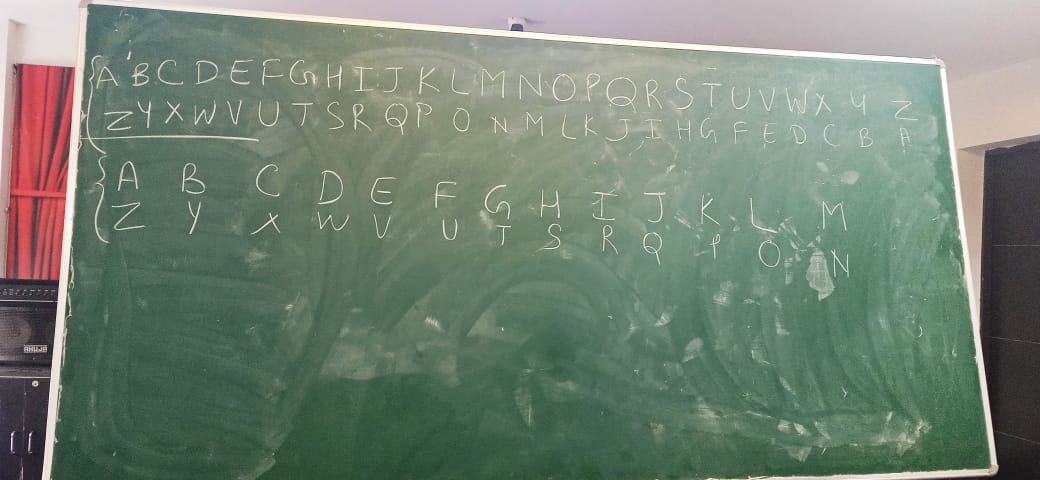 A B C D E F G H I J K L M N O P Q R S T U V W X Y Z
Z Y X W V U T S R Q P O N M L K J I H G F E D C B A
A B C D E F G H I J K L M
Z Y X W V U T S R Q P O N
AHUJA